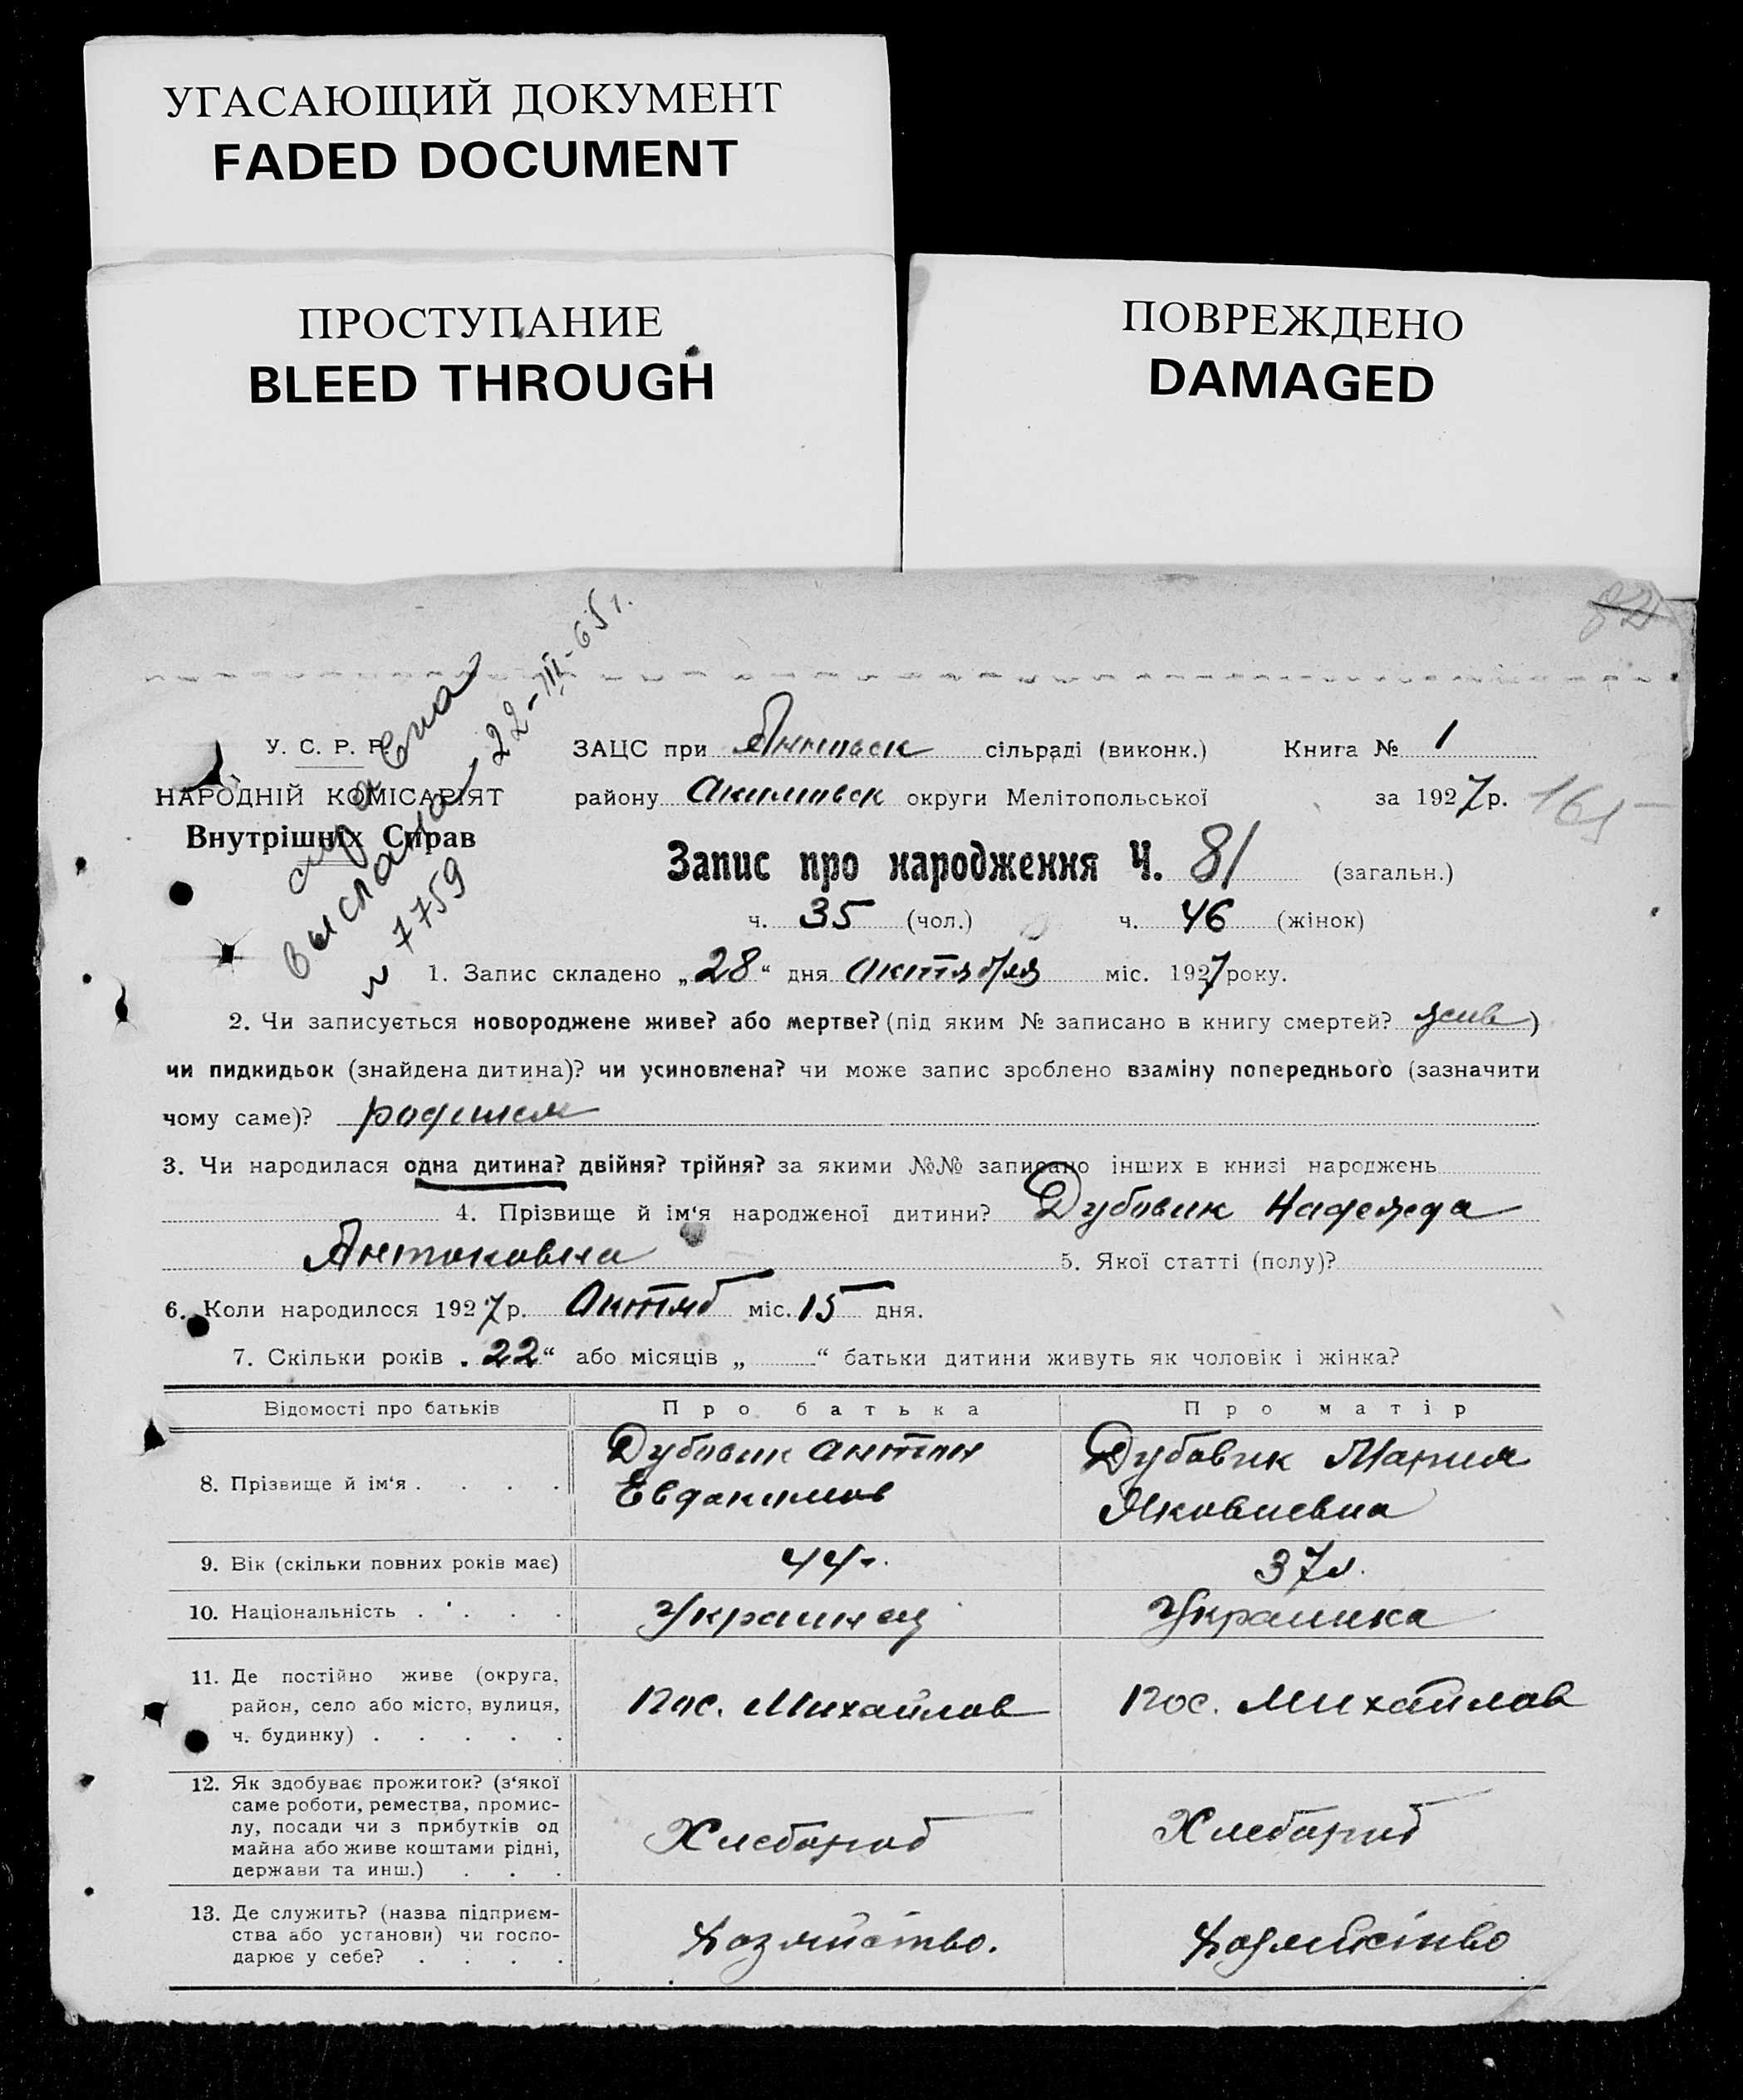 УГАСАЮЩИЙ ДОКУМЕНТ
FADED DOCUMENT
ПРОСТУПАНИЕ
BLEED THROUGH
ПОВРЕЖДЕНО
DAMAGED
82
справка
выслана 22-III-65 г.
№ 7759
У. С. Р. Р.
НАРОДНІЙ КОМІСАРІЯТ
Внутрішніх Справ
ЗАЦС при сільраді (виконк.) Книга № 1
району Акимовск округи Мелітопольської за 1927 р.
Запис про народження Ч. 81 (загальн.)
ч. 35 (чол.) ч. 46 (жінок)
1. Запис складено „28“ дня Октября міс. 1927 року.
2. Чи записується новороджене живе? або мертве? (під яким № записано в книгу смертей? жив)
чи пидкидьок (знайдена дитина)? чи усиновлена? чи може запис зроблено взаміну попереднього (зазначити
чому саме)?
3. Чи народилася одна дитина? двійня? трійня? за якими №№ записано інших в книзі народжень
4. Прізвище й ім‘я народженої дитини? Дубовик Надежда
Антоновна 5. Якої статті (полу)?
6. Коли народилося 1927 р. Октяб міс. 15 дня.
7. Скільки років „22“ або місяців „ “ батьки дитини живуть як чоловік і жінка?
Відомості про батьків Про батька Про матір
8. Прізвище й ім‘я . . . . Дубовик Антон Евдокимов Дубовик Мария Яковлевна
9. Вік (скільки повних років має) 44 г. 37 л.
10. Національність . . . . Украинец Украинка
11. Де постійно живе (округа,
район, село або місто, вулиця,
ч. будинку) . . . . . Пос. Михайлов Пос. Михайлов
12. Як здобуває прожиток? (з‘якої
саме роботи, ремества, промис-
лу, посади чи з прибутків од
майна або живе коштами рідні,
держави та инш.) . . . Хлебороб Хлебороб
13. Де служить? (назва підприєм-
ства або установи) чи госпо-
дарює у себе? . . . . Хозяйство. Хозяйство